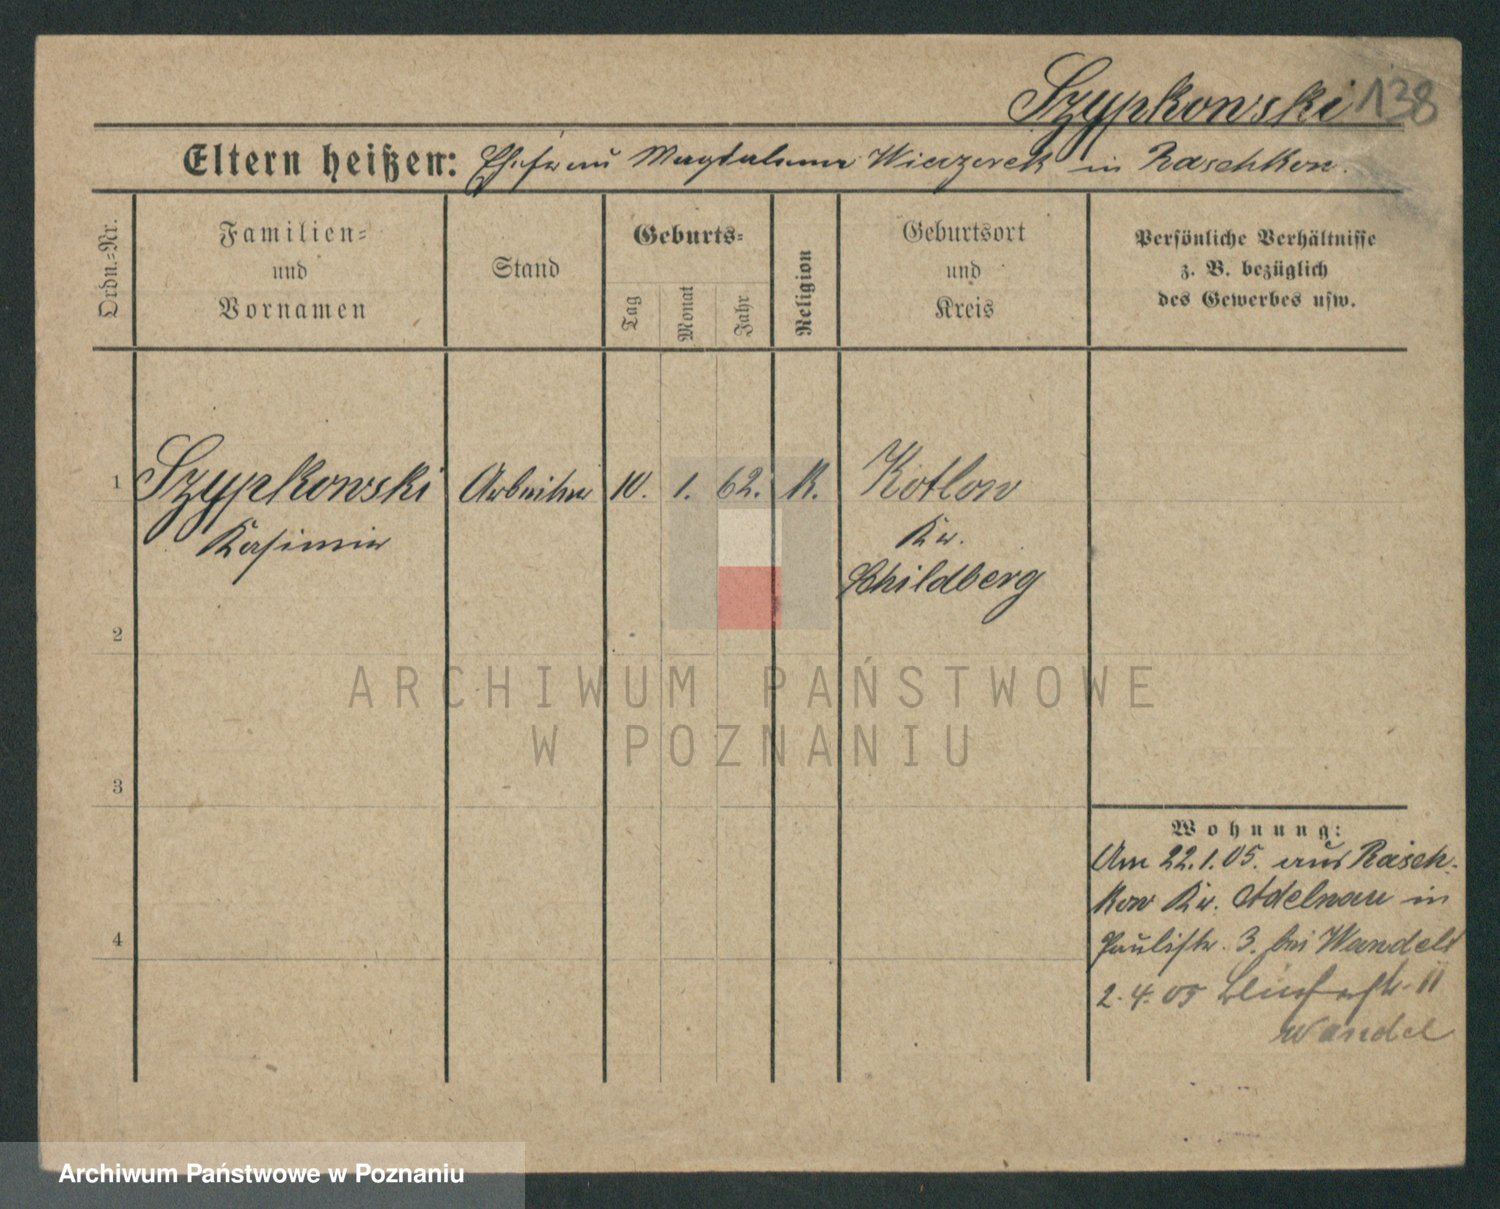 Szypkowski 138
Eltern heißen: Ehefrau Magdalena Wieczorek in Raschkow.
Ordn.-Nr.
Familien-
und
Vornamen
Stand
Geburts-
Tag
Monat
Jahr
Religion
Geburtsort
und
Kreis
Persönliche Verhältnisse
z. B. bezüglich
des Gewerbes usw.
1 Szypkowski Arbeiter 10. 1. 62. K. Kotlow
Kasimir Kr.
Schildberg
2
ARCHIWUM PAŃSTWOWE
W POZNANIU
3
Wohnung:
Am 22.1.05. aus Rasch-
kow Kr. Adelnau in
4
Paulistr. 3. bei Wandelt
2.4.05 11
Wandel
Archiwum Państwowe w Poznaniu